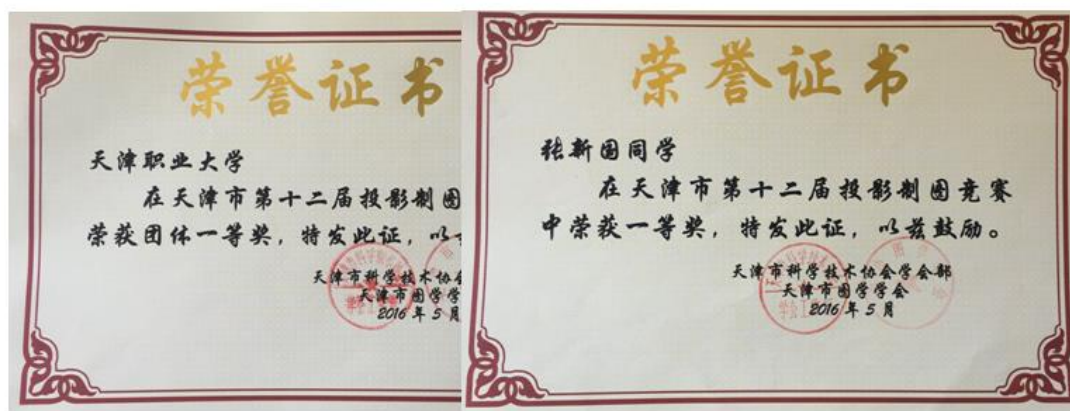 荣誉证书
天津职业大学
在天津市第十二届投影制图
荣获团体一等奖,特发此证,以
天津市科学技术协会
天津市图学学
2016年5月
荣誉证书
张新国同学
在天津市第十二届投影制图竞赛
中荣获一等奖,特发此证,以兹鼓励。
天津市科学技术协会学会部
天津市图学学会
2016年5月